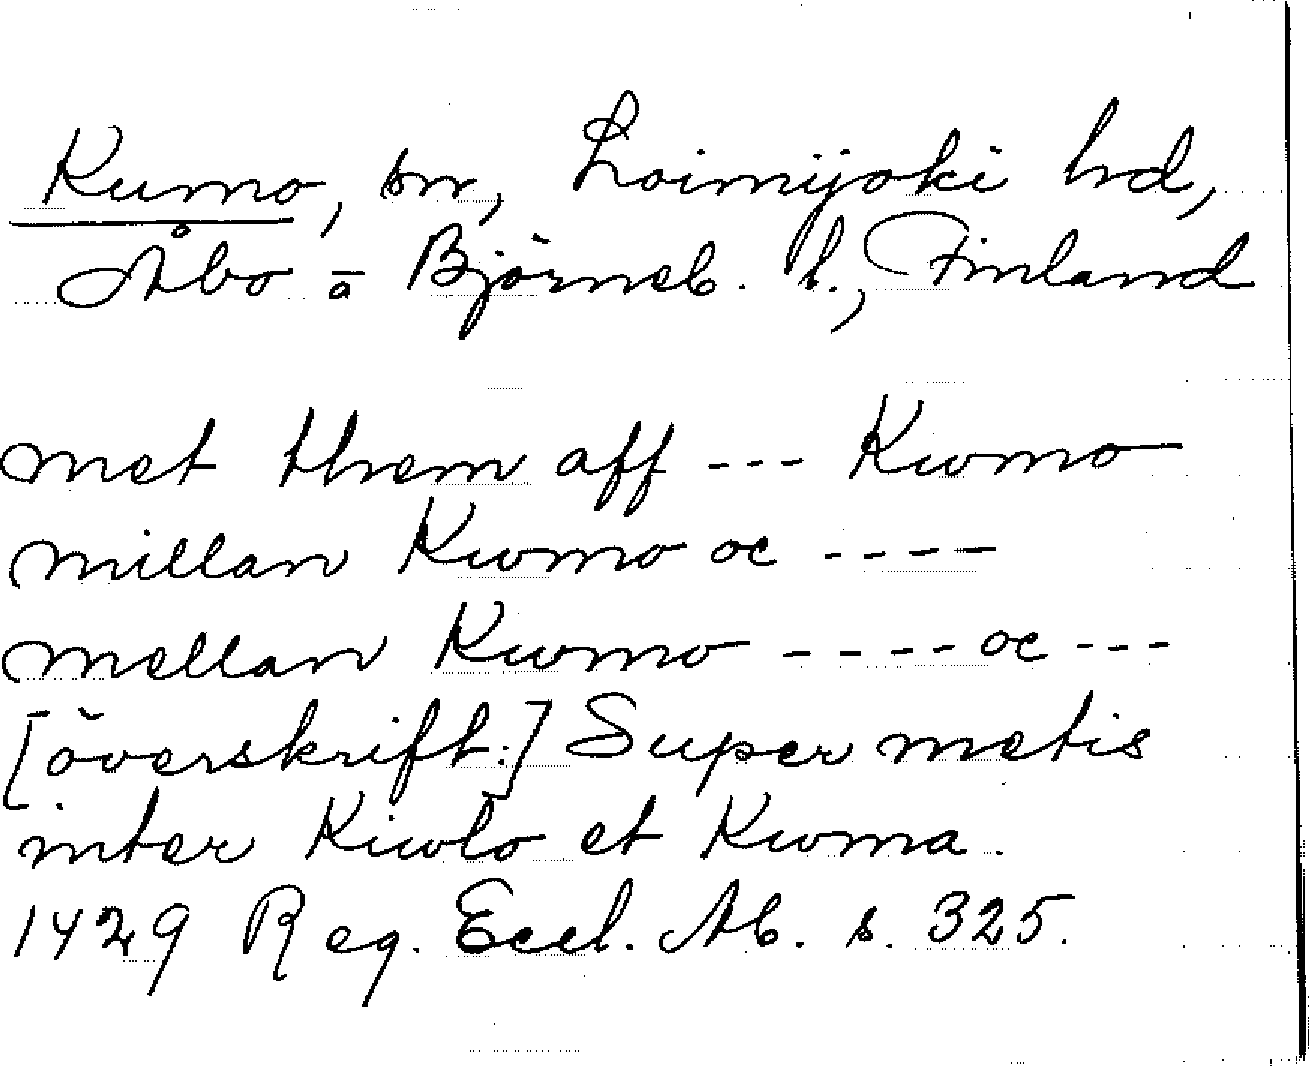 Kumo, sn, Loimijoki hd,
Åbo - o Björneb. l., Finland
met them aff --- Kwmo
millan Kwmo oc ----
mellan Kwmo ---- oc ---
[överskift:] Super metis
inter Kiwlo et Kwma.
1429 Reg. Eccl. Ab. s. 325.